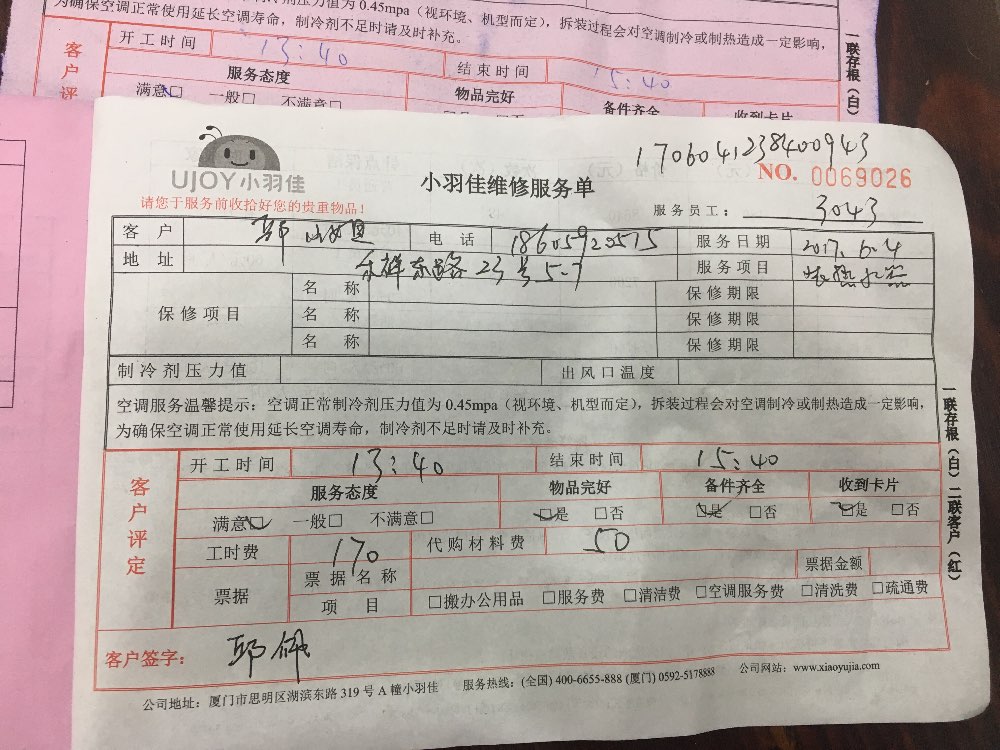 为确保空调正常使用延长空调寿命，制冷剂不足时请及时补充。
制冷剂压力值为 0.45mpa（视环境、机型而定），拆装过程会对空调制冷或制热造成一定影响，
客户评
开工时间 13:40 结束时间 15:40
服务态度 物品完好 备件齐全 收到卡片
满意☑ 一般□ 不满意□
一联存根（白）
UJOY小羽佳
请您于服务前收拾好您的贵重物品！
小羽佳维修服务单
1706041238400943
NO. 0069026
服务员工： 3043
客 户 电 话 18605920515 服务日期 2017.6.4
地 址 东路23号5-7 服务项目 装热水器
保修项目 名 称 保修期限
名 称 保修期限
名 称 保修期限
制冷剂压力值 出风口温度
空调服务温馨提示：空调正常制冷剂压力值为 0.45mpa（视环境、机型而定），拆装过程会对空调制冷或制热造成一定影响，
为确保空调正常使用延长空调寿命，制冷剂不足时请及时补充。
客户评定
开工时间 13:40 结束时间 15:40
服务态度 物品完好 备件齐全 收到卡片
满意☑ 一般□ 不满意□ ☑是 □否 ☑是 □否 ☑是 □否
工时费 170 代购材料费 50
票据 票据名称 票据金额
项 目 □搬办公用品 □服务费 □清洁费 □空调服务费 □清洗费 □疏通费
客户签字：
一联存根（白）二联客户（红）
公司地址：厦门市思明区湖滨东路 319 号 A 幢小羽佳 服务热线：(全国) 400-6655-888 (厦门) 0592-5178888 公司网站：www.xiaoyujia.com